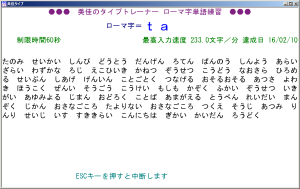 美佳タイプ
●●● 美佳のタイプトレーナー ローマ字単語練習 ●●●
ローマ字= ta
制限時間60秒 最高入力速度 233.0文字/分 達成日 16/02/10
たのみ せいかい しんぴ どうとう だんげん ろてん ばんのう しんよう あらい
ざらい わずかな ろじ えこひいき かねつ ぞうせつ こうどう なおさら ひろめ
る せいぶん しあげ げんいん ことごとく つなげる おそるおそる あつさ よわ
き ほうこく ぜんい そうごう こうけい もしも かぞく ふかい ぞうせつ いき
がい あゆみよる じまん おどろく ことば あまがえる とうべん れいだい まん
ぞく じかん おさなごころ たよりない おさなごころ つくえ そうじ あつみ り
んり せいじ いす すききらい こんにちは ぎかい かいだん ろうどく
ESCキーを押すと中断します